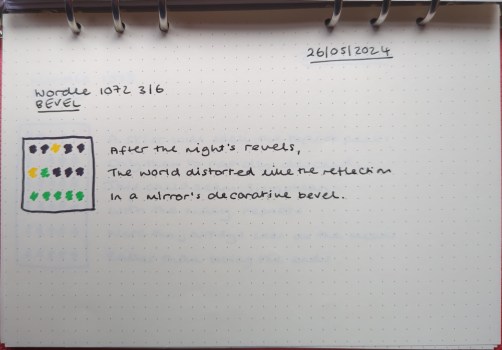 26/05/2024
Wordle 1072 3/6
BEVEL
After the night's revels,
The world distorted like the reflection
In a mirror's decorative bevel.